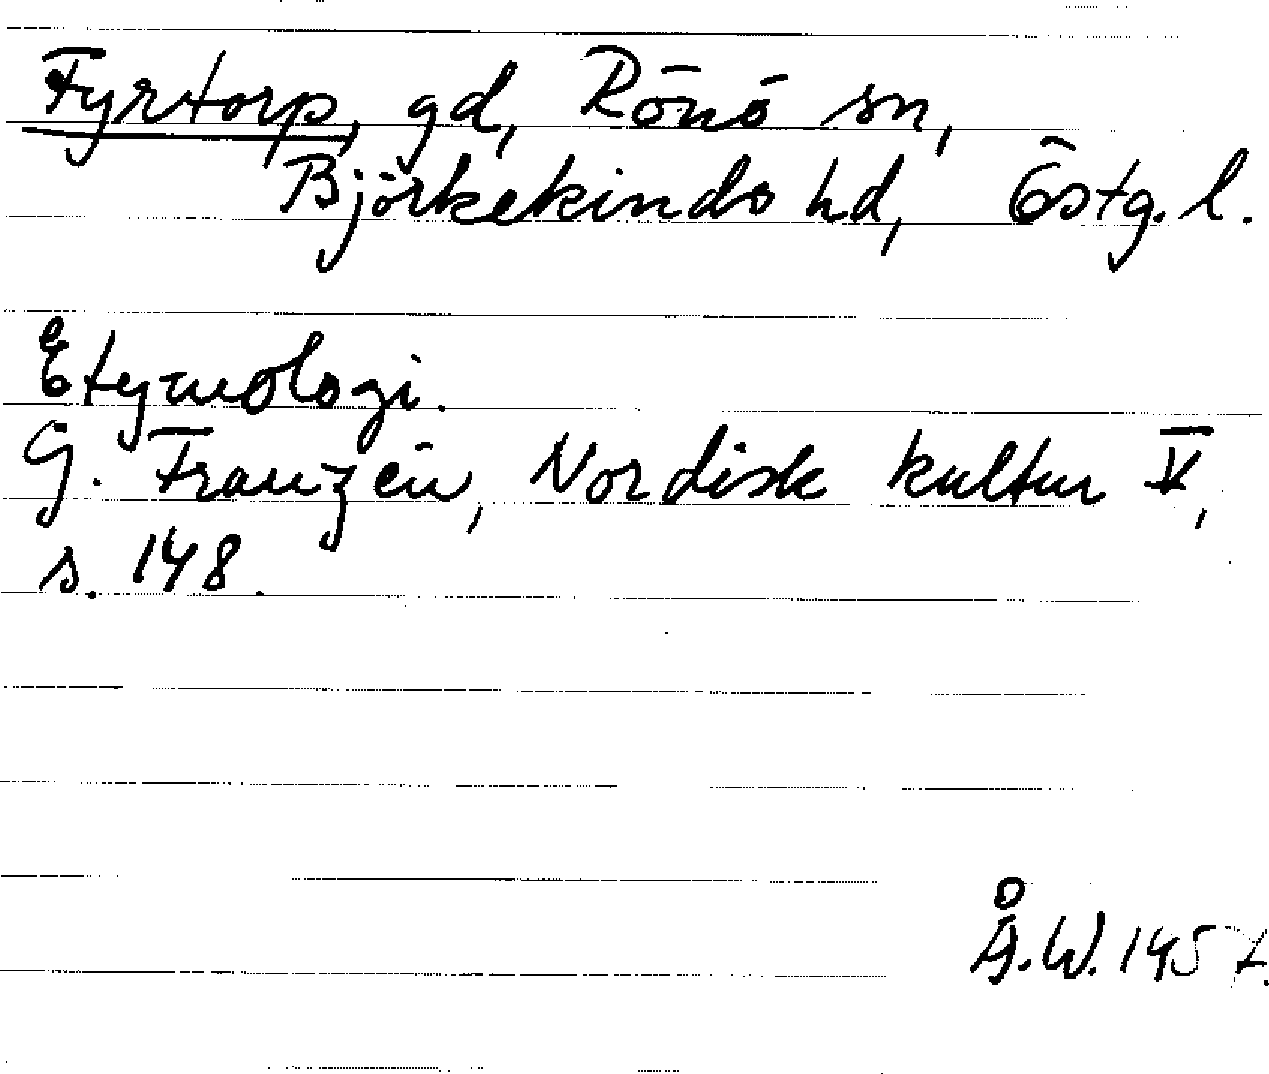 Fyrtorp, gd, Rönö sn,
Björkekinds hd, Östg. l.
Etymologi.
G. Franzén, Nordisk kultur V,
s. 148.
Å.W. 1957.